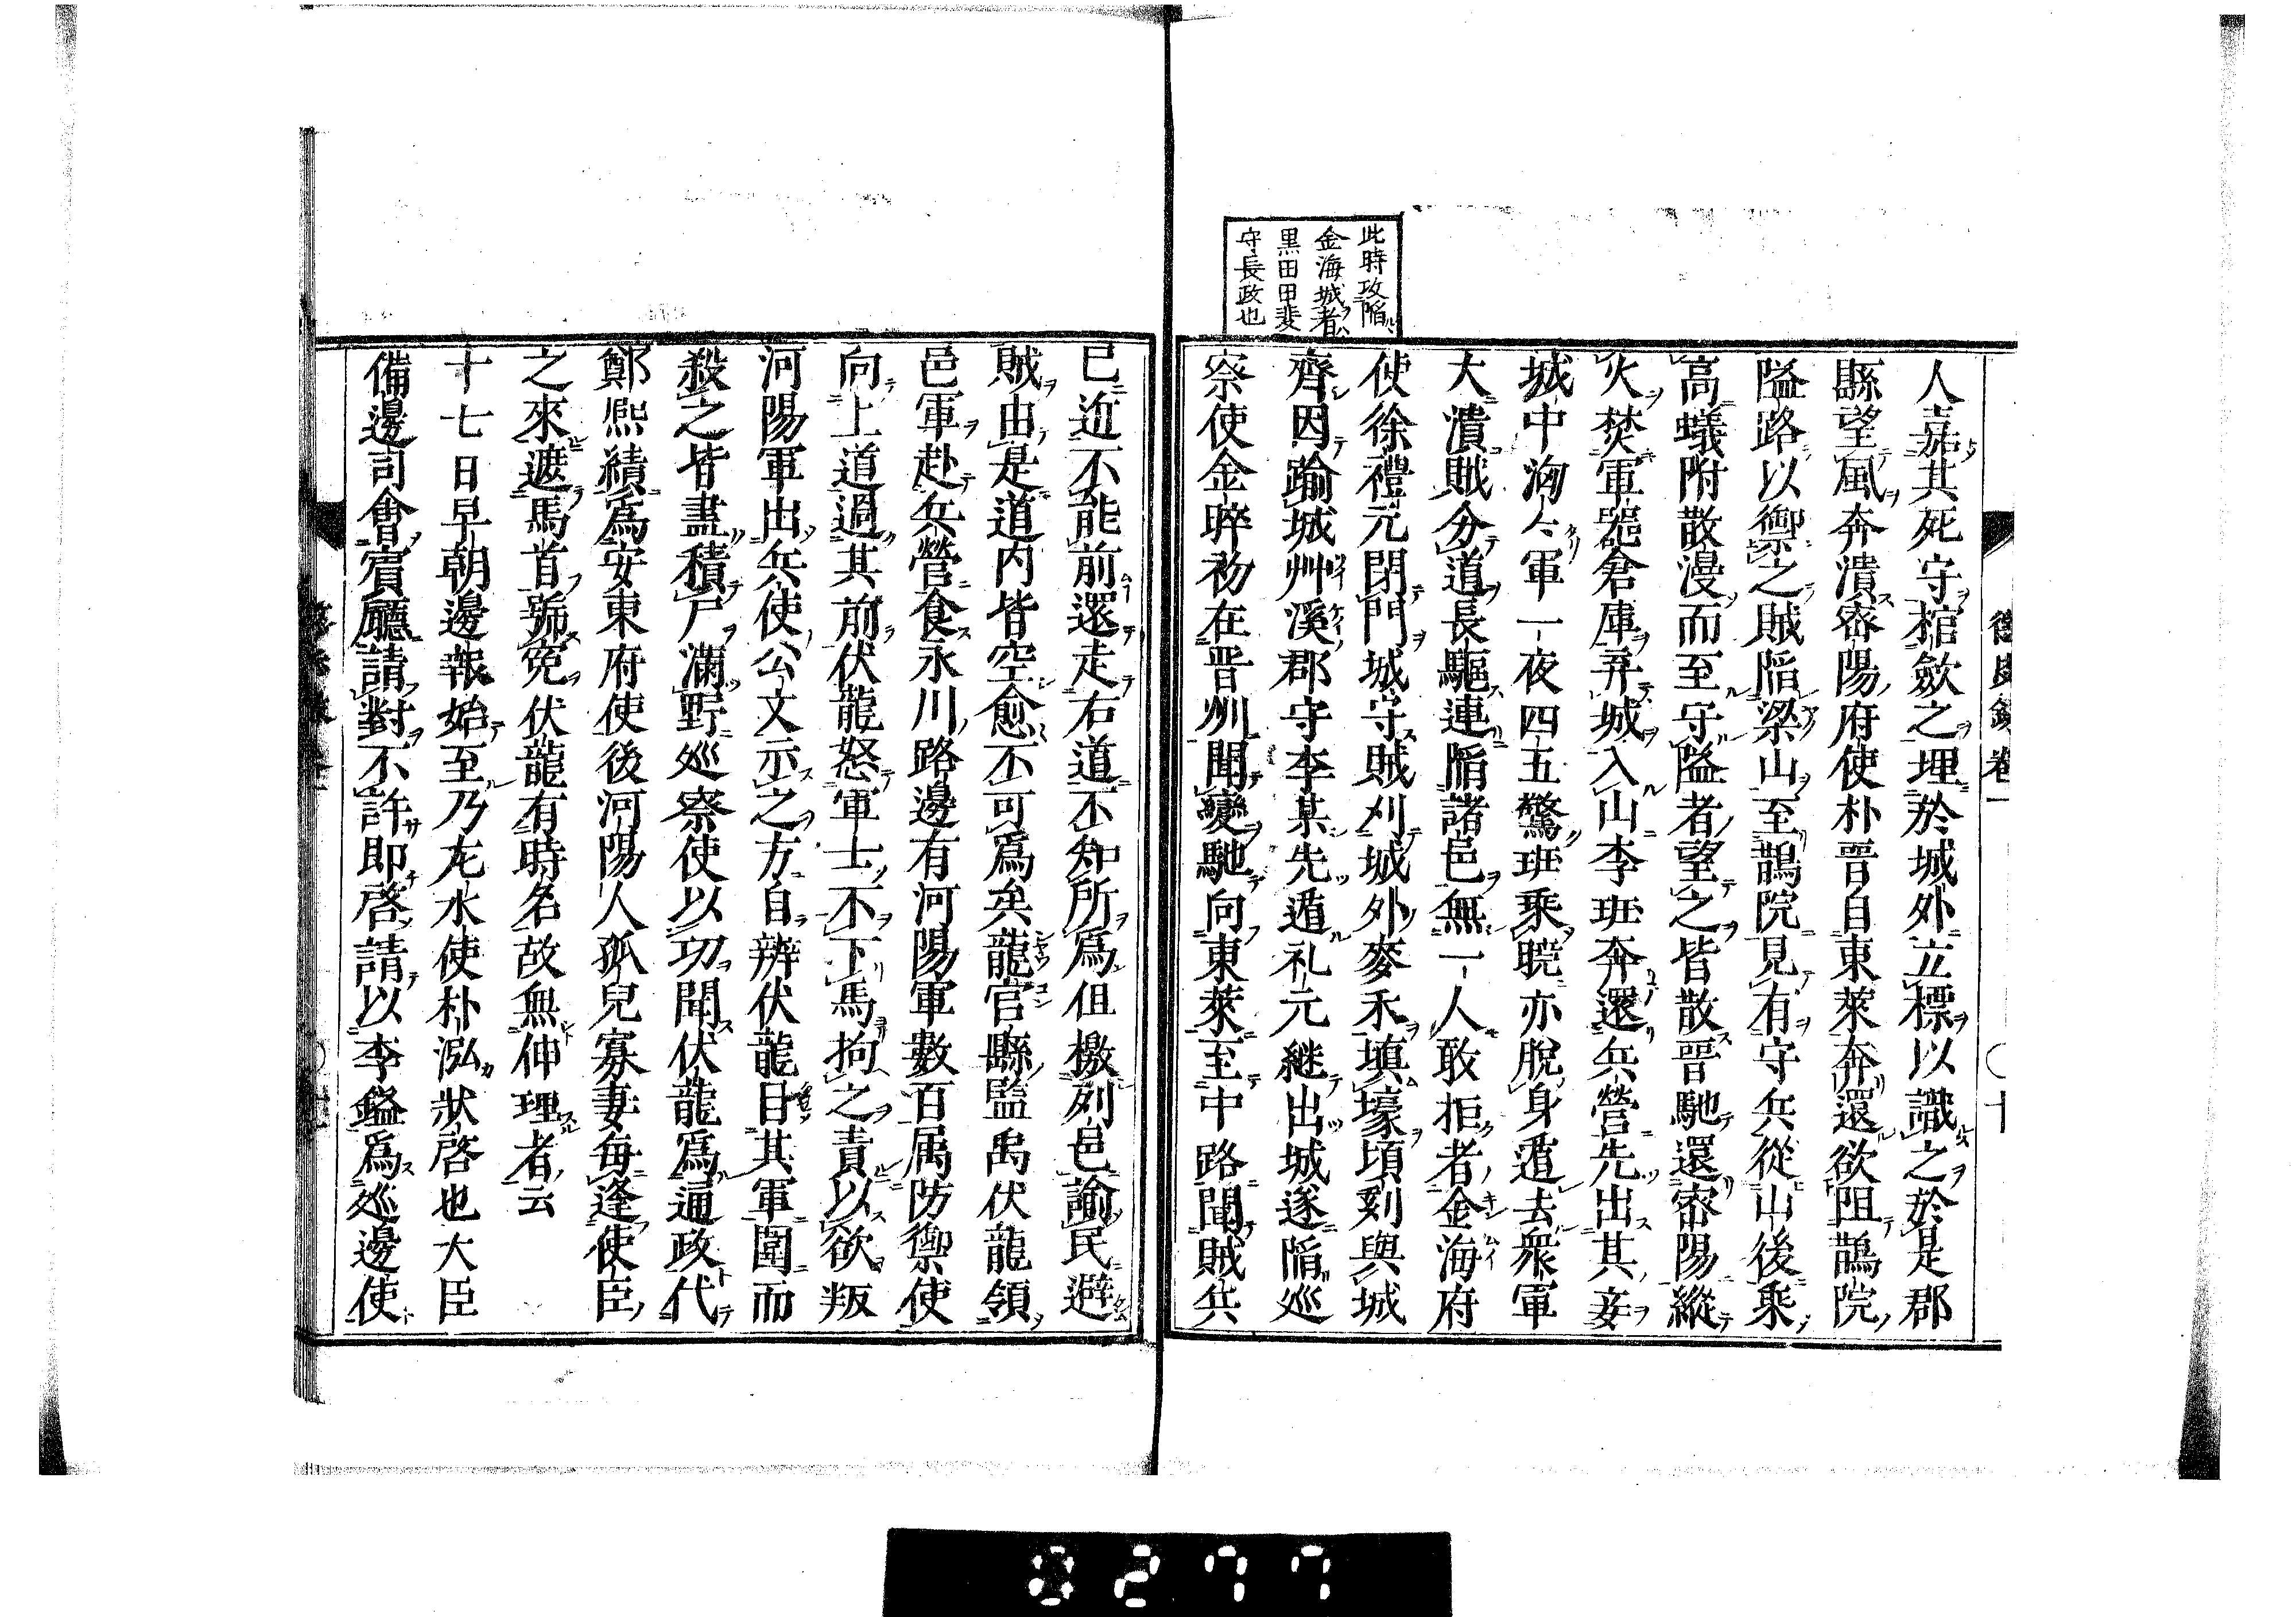 懲毖錄卷一 〇十
此時攻陷
金海城者
黒田甲斐
守長政也
人嘉其死守棺斂之埋於城外立標以識之於是郡
縣望風奔潰密陽府使朴晋自東萊奔還欲阻鵲院
隘路以禦之賊陷梁山至鵲院見有守兵從山後乘
高蟻附散漫而至守隘者望之皆散晋馳還密陽縱
火焚軍噐倉庫弃城入山李珏奔還兵營先出其妾
城中洶々軍一夜四五驚珏乘曉亦脫身遁去衆軍
大潰賊分道長驅連陷諸邑無一人敢拒者金海府
使徐禮元閉門城守賊刈城外麥禾塡壕頃刻與城
齊因踰城艸溪郡守李某先遁礼元継出城遂陷巡
察使金睟初在晋州聞變馳向東萊至中路聞賊兵
已近不能前還走右道不知所爲但檄列邑諭民避
賊由是道内皆空愈不可爲矣龍宮縣監禹伏龍領
邑軍赴兵營食永川路邊有河陽軍數百属防禦使
向上道過其前伏龍怒軍士不下馬拘之責以欲叛
河陽軍出兵使公文示之方自辨伏龍目其軍圍而
殺之皆盡積尸滿野巡察使以功聞伏龍爲通政代
鄭熙績爲安東府使後河陽人孤兒寡妻每逢使臣
之來遮馬首號寃伏龍有時名故無伸理者云
十七日早朝邊報始至乃左水使朴泓狀啓也大臣
備邊司會賓廳請對不許即啓請以李鎰爲巡邊使
3277